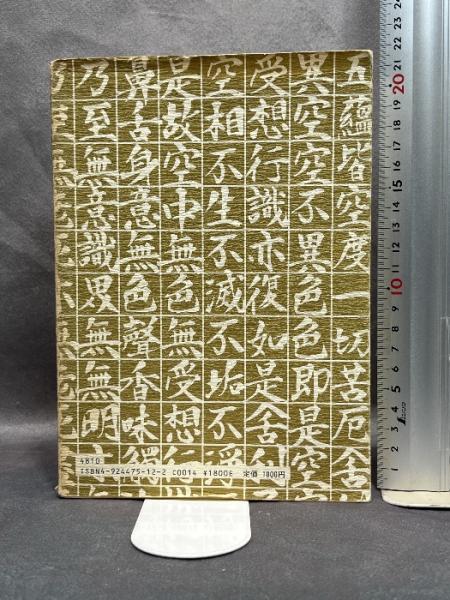 五蘊皆空度一切苦厄舍
異空空不異色色即是空
受想行識亦復如是舍利
空相不生不滅不垢不淨
是故空中無色無受想行
鼻舌身意無色聲香味觸
乃至無意識界無無明
4810
ISBN4-924475-12-2 C0014 ¥1800E 定価 1800円
24 23 22 21 20 19 18 17 16 15 14 13 12 11 10 9 8 7 6 5 4 3 2 1